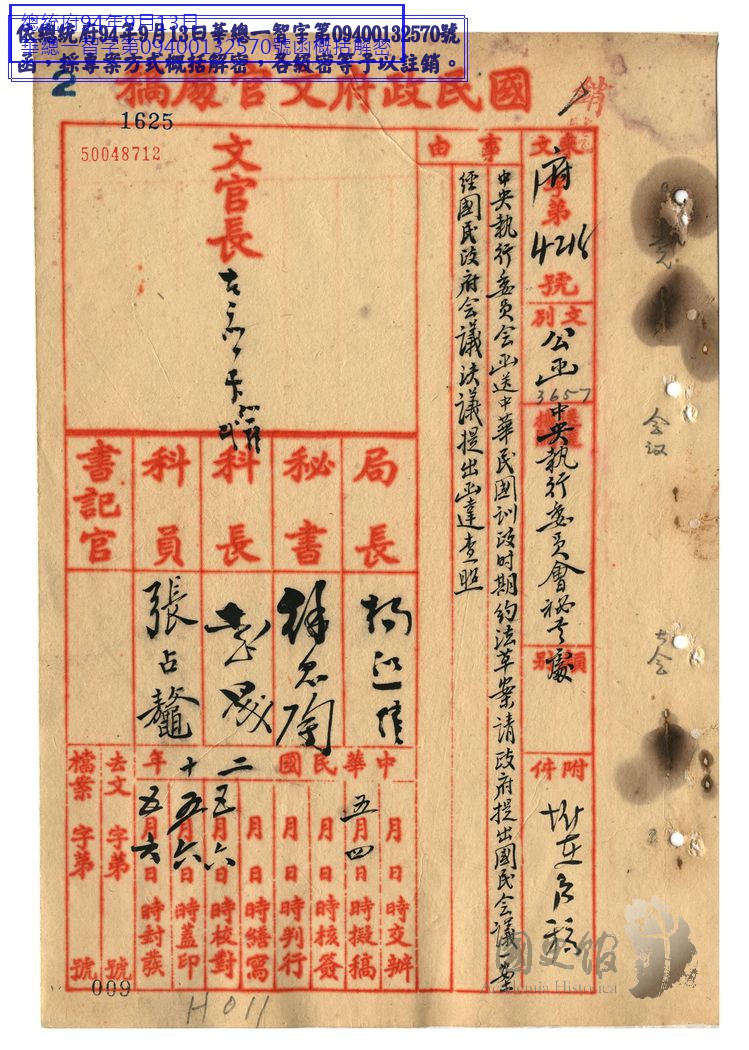 總統府94年9月13日
華總一智字第09400132570號函概括解密
依總統府94年9月13日華總一智字第09400132570號
函，採專案方式概括解密，各級密等予以註銷。
2
國民政府文官處稿
銷
1625
50048712
來文
府字第
號
文別
公函
3657
中央執行委員會秘書處
類別
附件
事由
中央執行委員會函送中華民國訓政時期約法草案請政府提出國民會議一案
經國民政府會議決議提出函達查照
文官長
局長
秘書
科長
科員
張占鼇
書記官
中華民國二十年
月日時交辦
五月四日時擬稿
月日時核簽
月日時判行
月日時繕寫
五月六日時校對
五月六日時蓋印
五月六日時封發
去文 字第 號
檔案 字第 號
009
H011
會議
國史館
Academia Historica